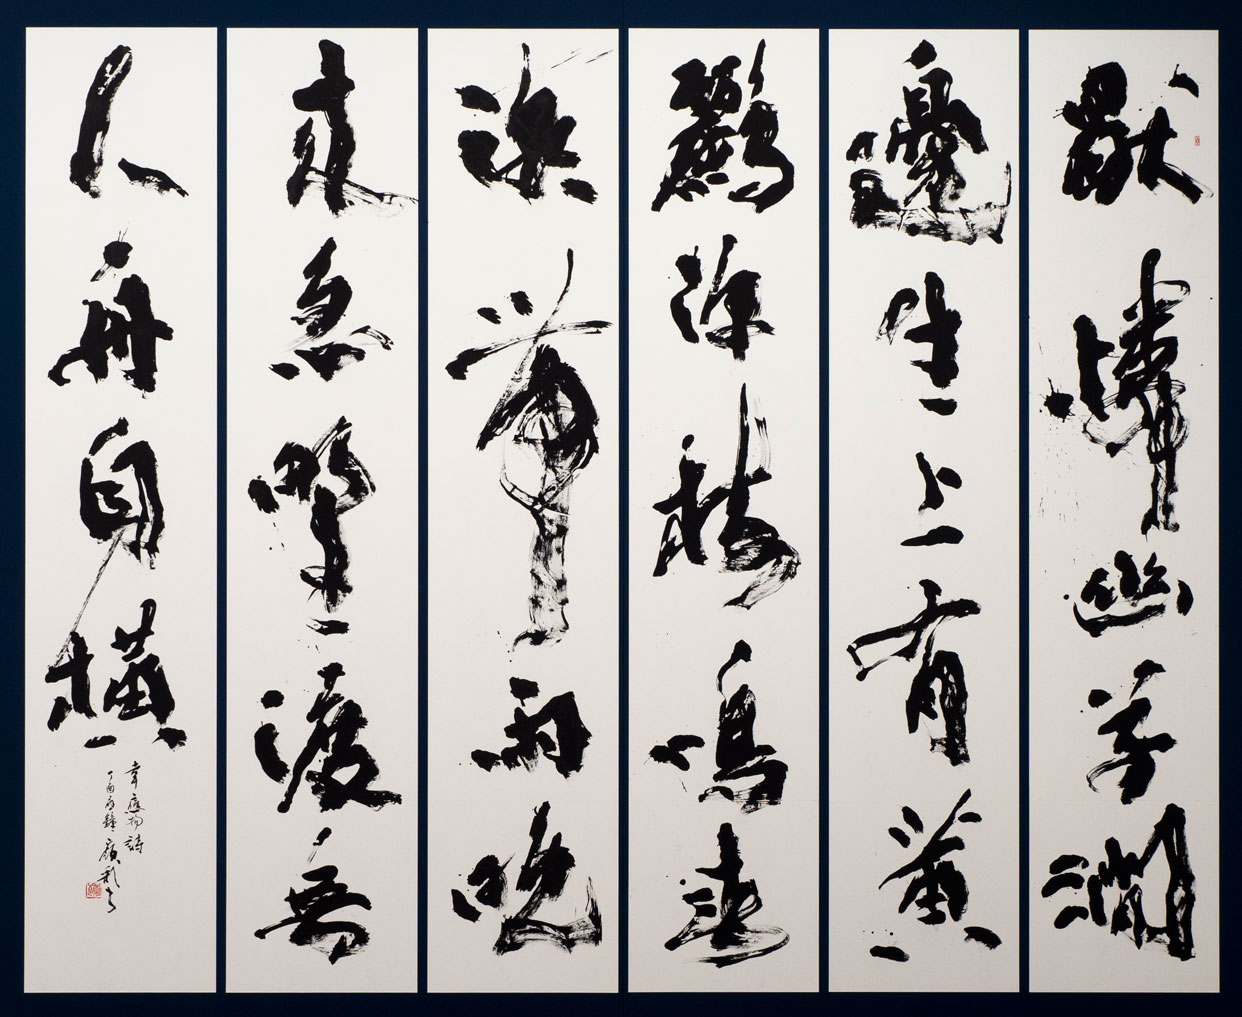 獨憐幽草澗
邊生上有黃
鸝深樹鳴春
潮帶雨晚
來急野渡無
人舟自橫
韋應物詩
丁酉